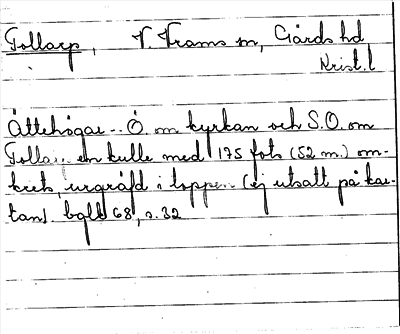 Tollarp, V. Vrams sn, Gärds hd
Krist. l
Ättehögar - Ö. om kyrkan och S.O. om
Tolla.. en kulle med 175 fots (52 m.) om-
krets, urgräfd i toppen (ej utsatt på kar-
tan) bgll 68, s. 32